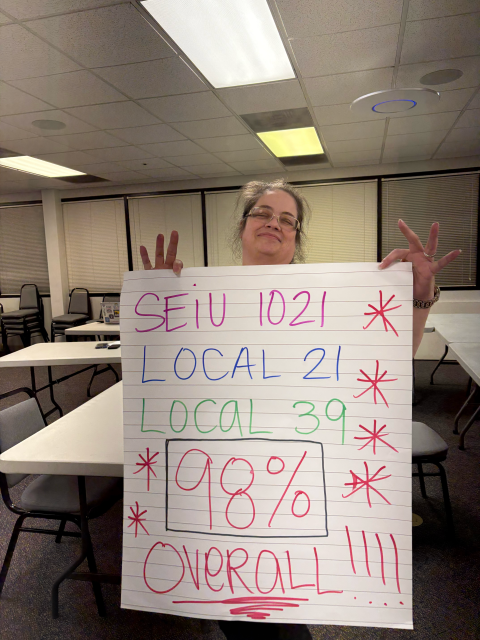 SEIU 1021
LOCAL 21
LOCAL 39
98%
OVERALL!!!!